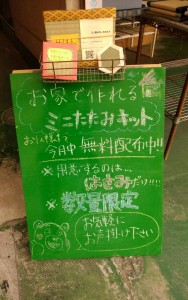 お家で作れる
ミニたたみキット
お1人様1つ
今月中 無料配布中!!
※用意するのは…
はさみだけ!!!
※数量限定
お気軽に
お声掛け下さい